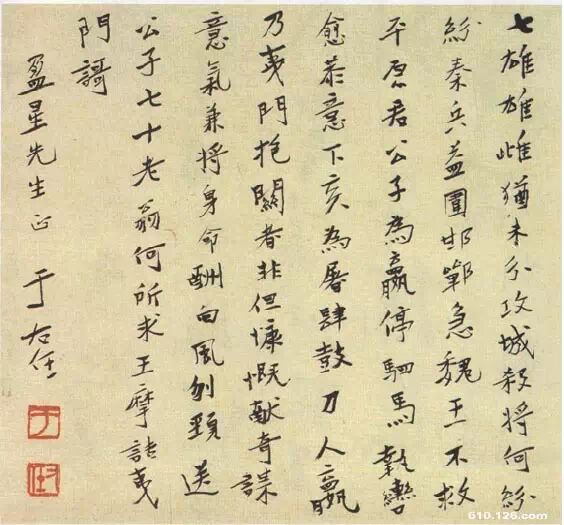 七雄雄雌猶未分攻城殺將何紛
紛秦兵益圍邯鄲急魏王不救
平原君公子為嬴停駟馬執轡
愈恭意下亥為屠肆鼓刀人嬴
乃夷門抱關者非但慷慨獻奇謀
意氣兼將身命酬向風刎頸送
公子七十老翁何所求王摩詰夷
門謌
盈星先生正 于右任
610.126.com